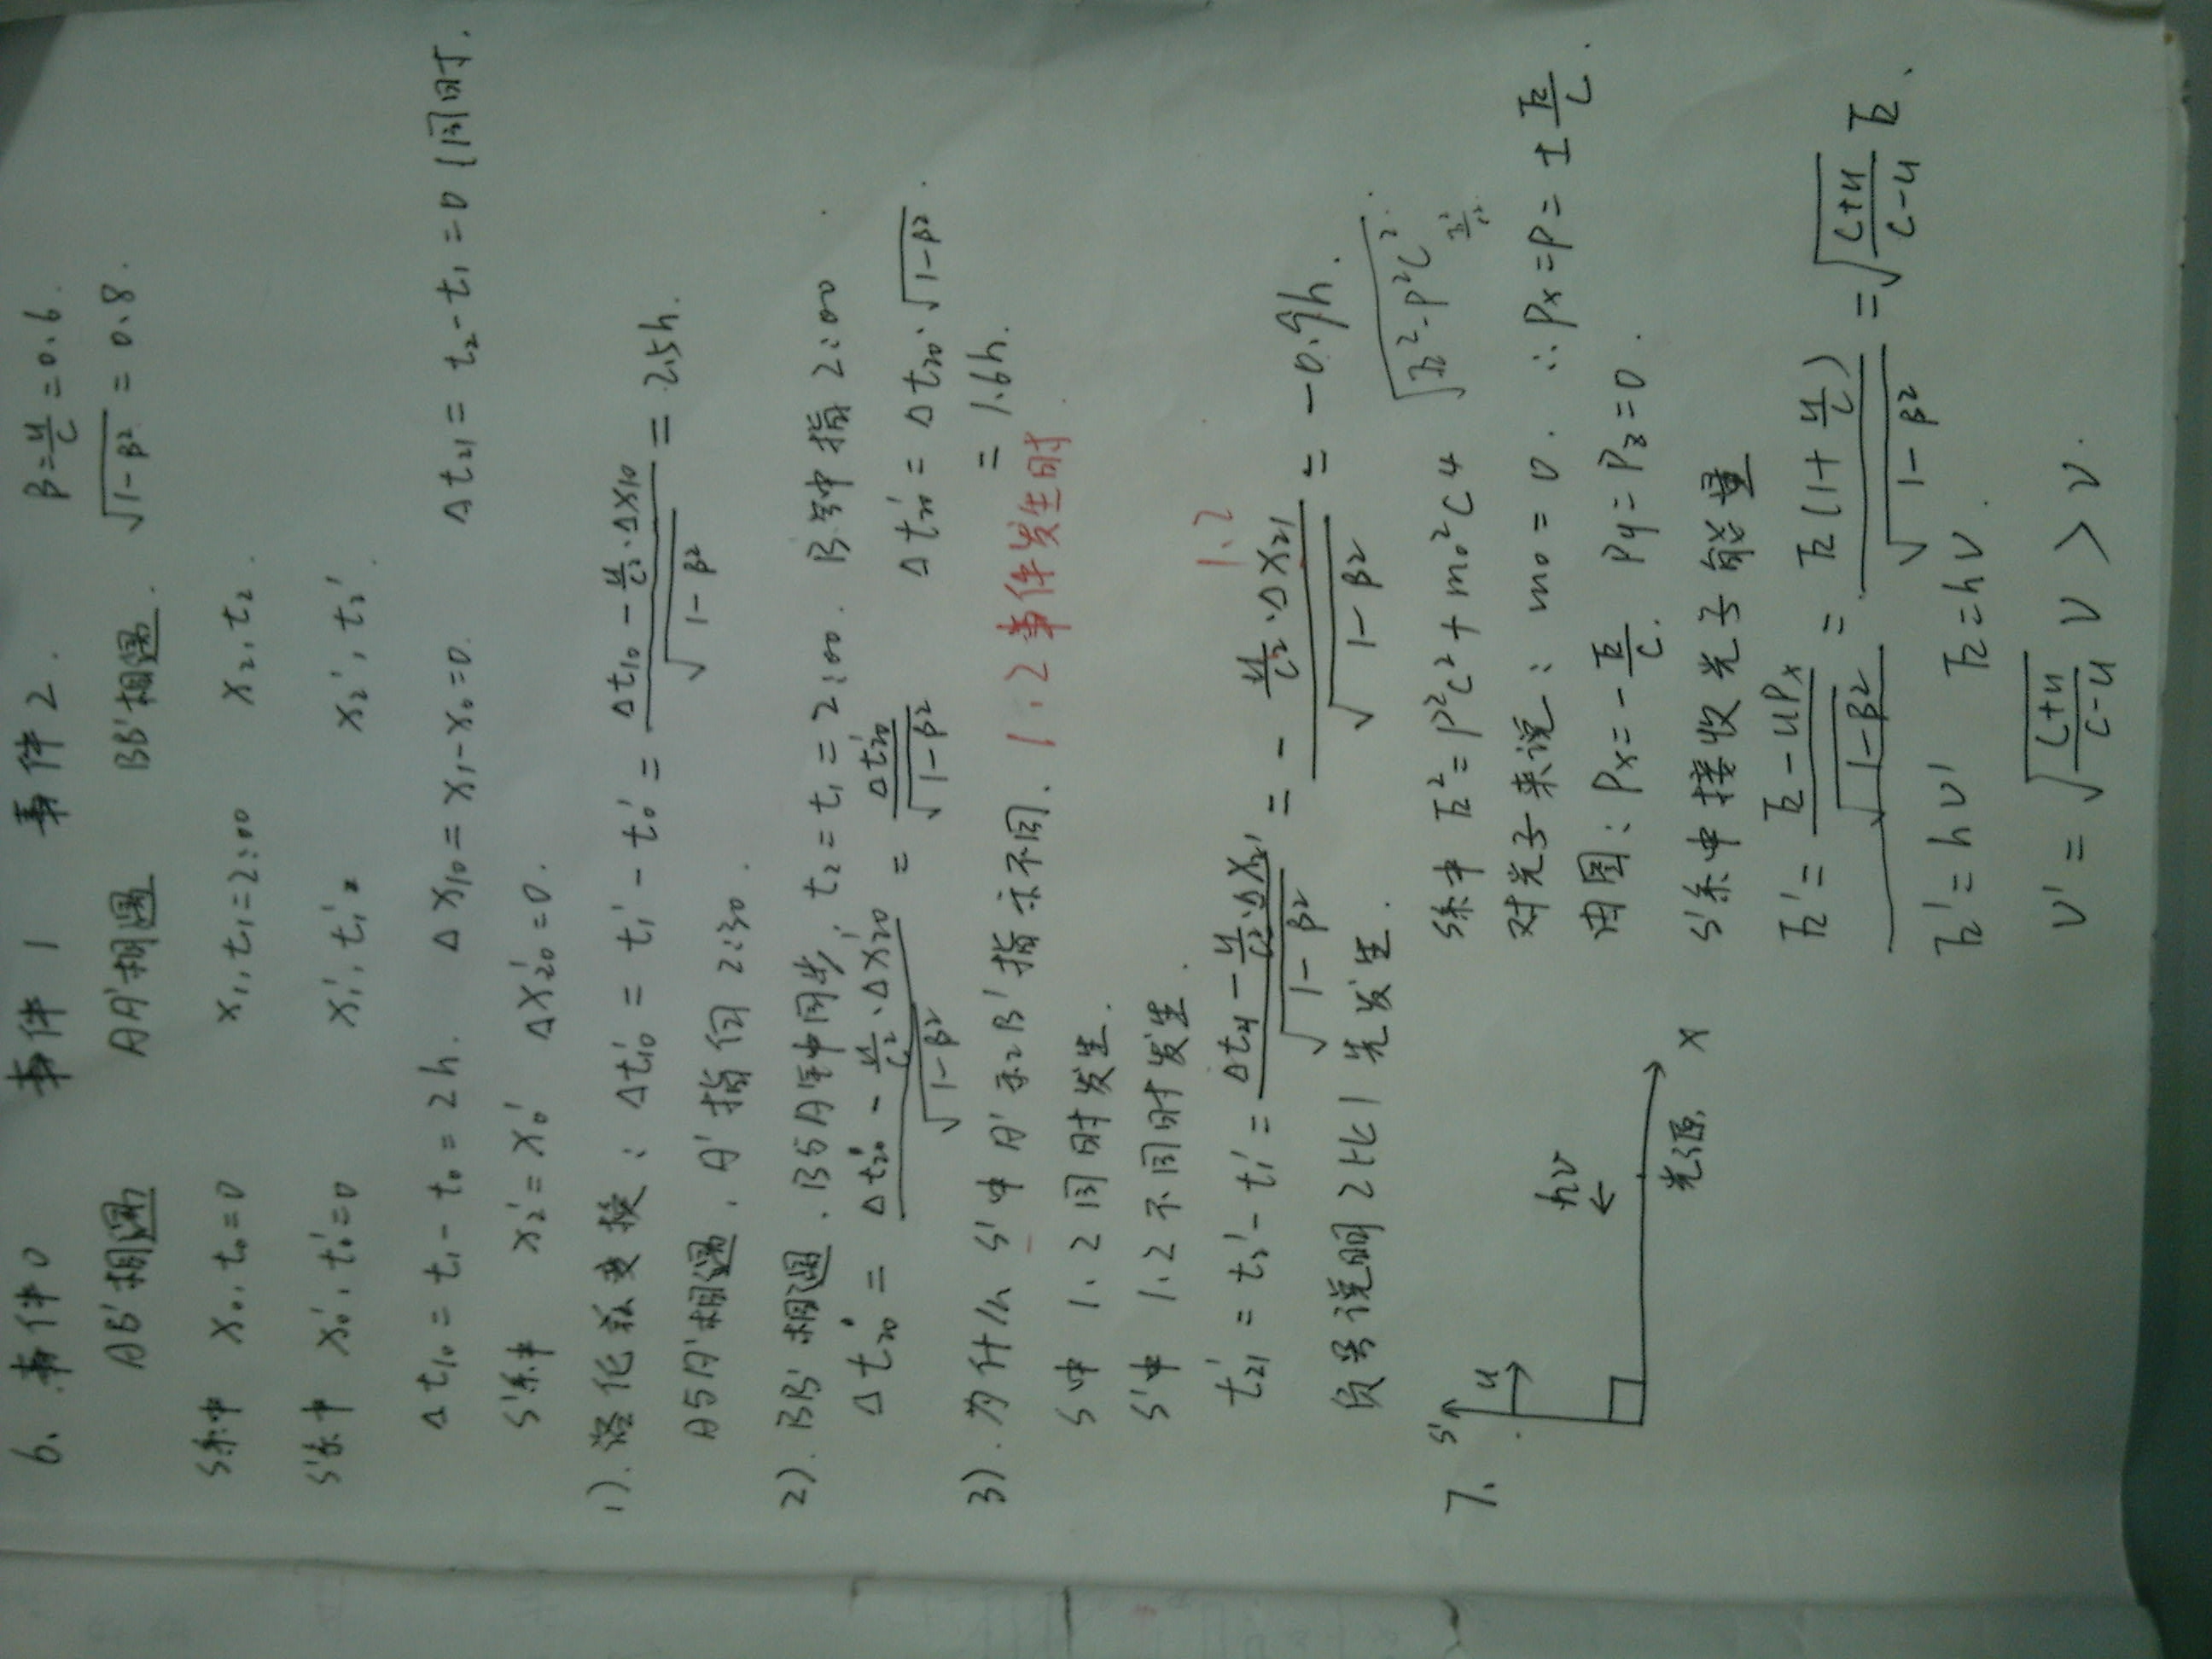 6. 事件0 事件1 事件2. β=u/c=0.6.
AB'相遇 AA'相遇 BB'相遇. √(1-β²)=0.8.
S系中 x₀,t₀=0 x₁,t₁=2:00 x₂,t₂.
S'系中 x₀',t₀'=0 x₁',t₁' x₂',t₂'
Δt₁₀=t₁-t₀=2h. Δx₁₀=x₁-x₀=0. Δt₂₁=t₂-t₁=0 (同时.
S'系中 x₂'=x₀' Δx₂₀'=0.
1).洛伦兹变换: Δt₁₀'=t₁'-t₀'=(Δt₁₀-u/c²·Δx₁₀)/√(1-β²)=2.5h.
A与A'相遇, A'指向2:30.
2). BB'相遇. B与A钟同步, t₂=t₁=2:00. B钟指2:00
Δt₂₀=(Δt₂₀'-u/c²·Δx₂₀')/√(1-β²)=Δt₂₀'/√(1-β²) Δt₂₀'=Δt₂₀·√(1-β²).
=1.6h.
3).为什么S'中A'和B'指示不同. 1.2事件发生时
S中 1.2同时发生.
S'中 1.2不同时发生. 1.2
t₂₁'=t₂'-t₁'=(Δt₂₁-u/c²·Δx₂₁)/√(1-β²)=-(u/c²·Δx₂₁)/√(1-β²)=-0.9h.
负号说明2比1先发生.
7. S' u hν 光源 x
S系中 E²=P²c²+m₀²c⁴ √(E²-P²c²)
对光子来说: m₀=0. ∴Px=P=±E/c.
由图: Px=-E/c. Py=Pz=0.
S'系中接收光子能量
E'=(E-uPx)/√(1-β²)=E(1+u/c)/√(1-β²)=√((c+u)/(c-u)) E.
E'=hν' E=hν.
ν'=√((c+u)/(c-u)) ν>ν.